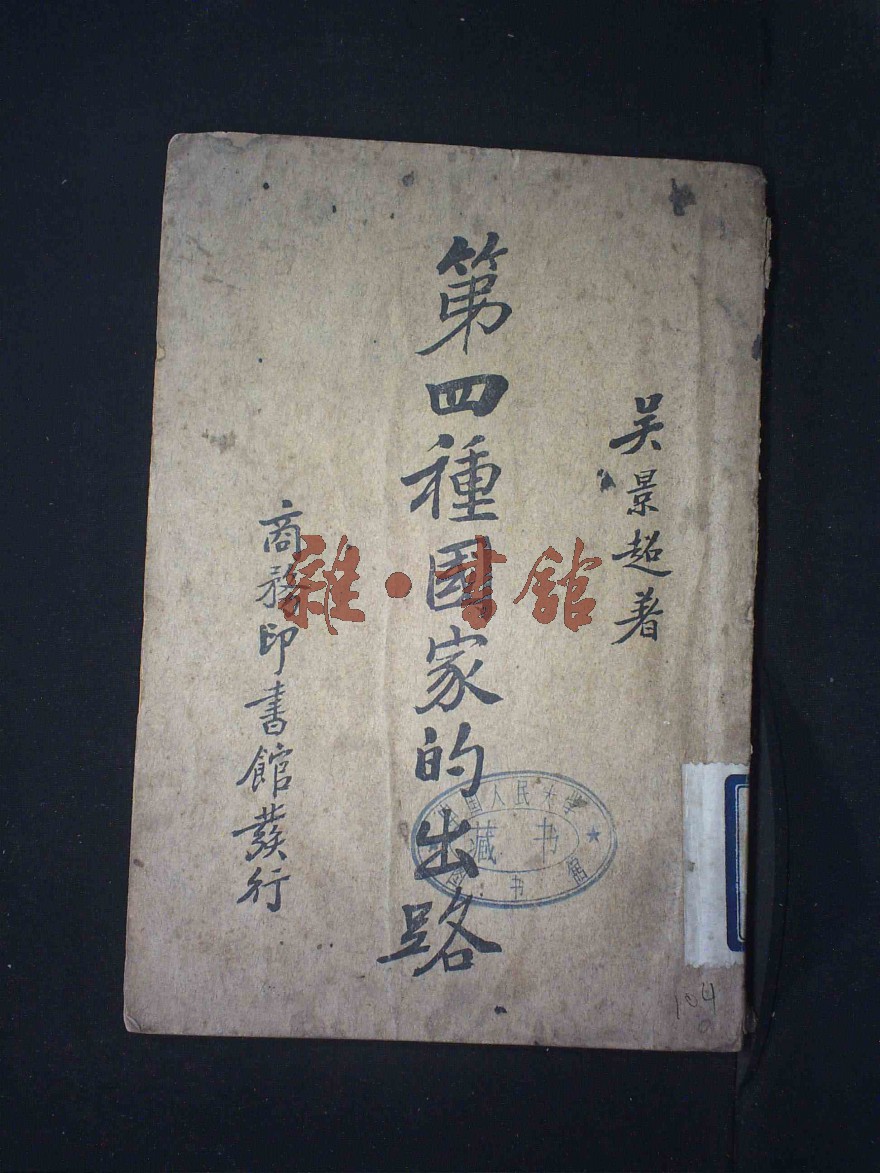 吴景超著
第四種國家的出路
商務印書館發行
雜·書館
中国人民大学
藏书
图书馆
104